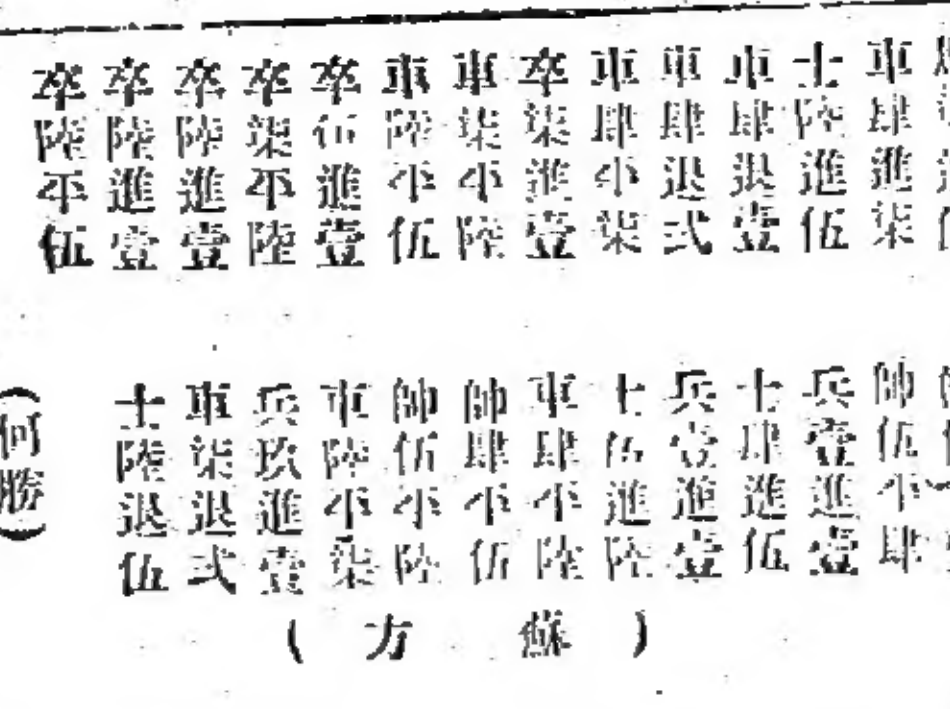 車肆進柒
士陸進伍
車肆退壹
車肆退弍
車肆平柒
卒柒進壹
車柒平陸
車陸平伍
卒伍進壹
卒柒平陸
卒陸進壹
卒陸進壹
卒陸平伍
帥伍平肆
兵壹進壹
士肆進伍
兵壹進壹
士伍進陸
車肆平陸
帥肆平伍
帥伍平陸
車陸平柒
兵玖進壹
車柒退弍
士陸退伍
(何勝)
(蘇方)